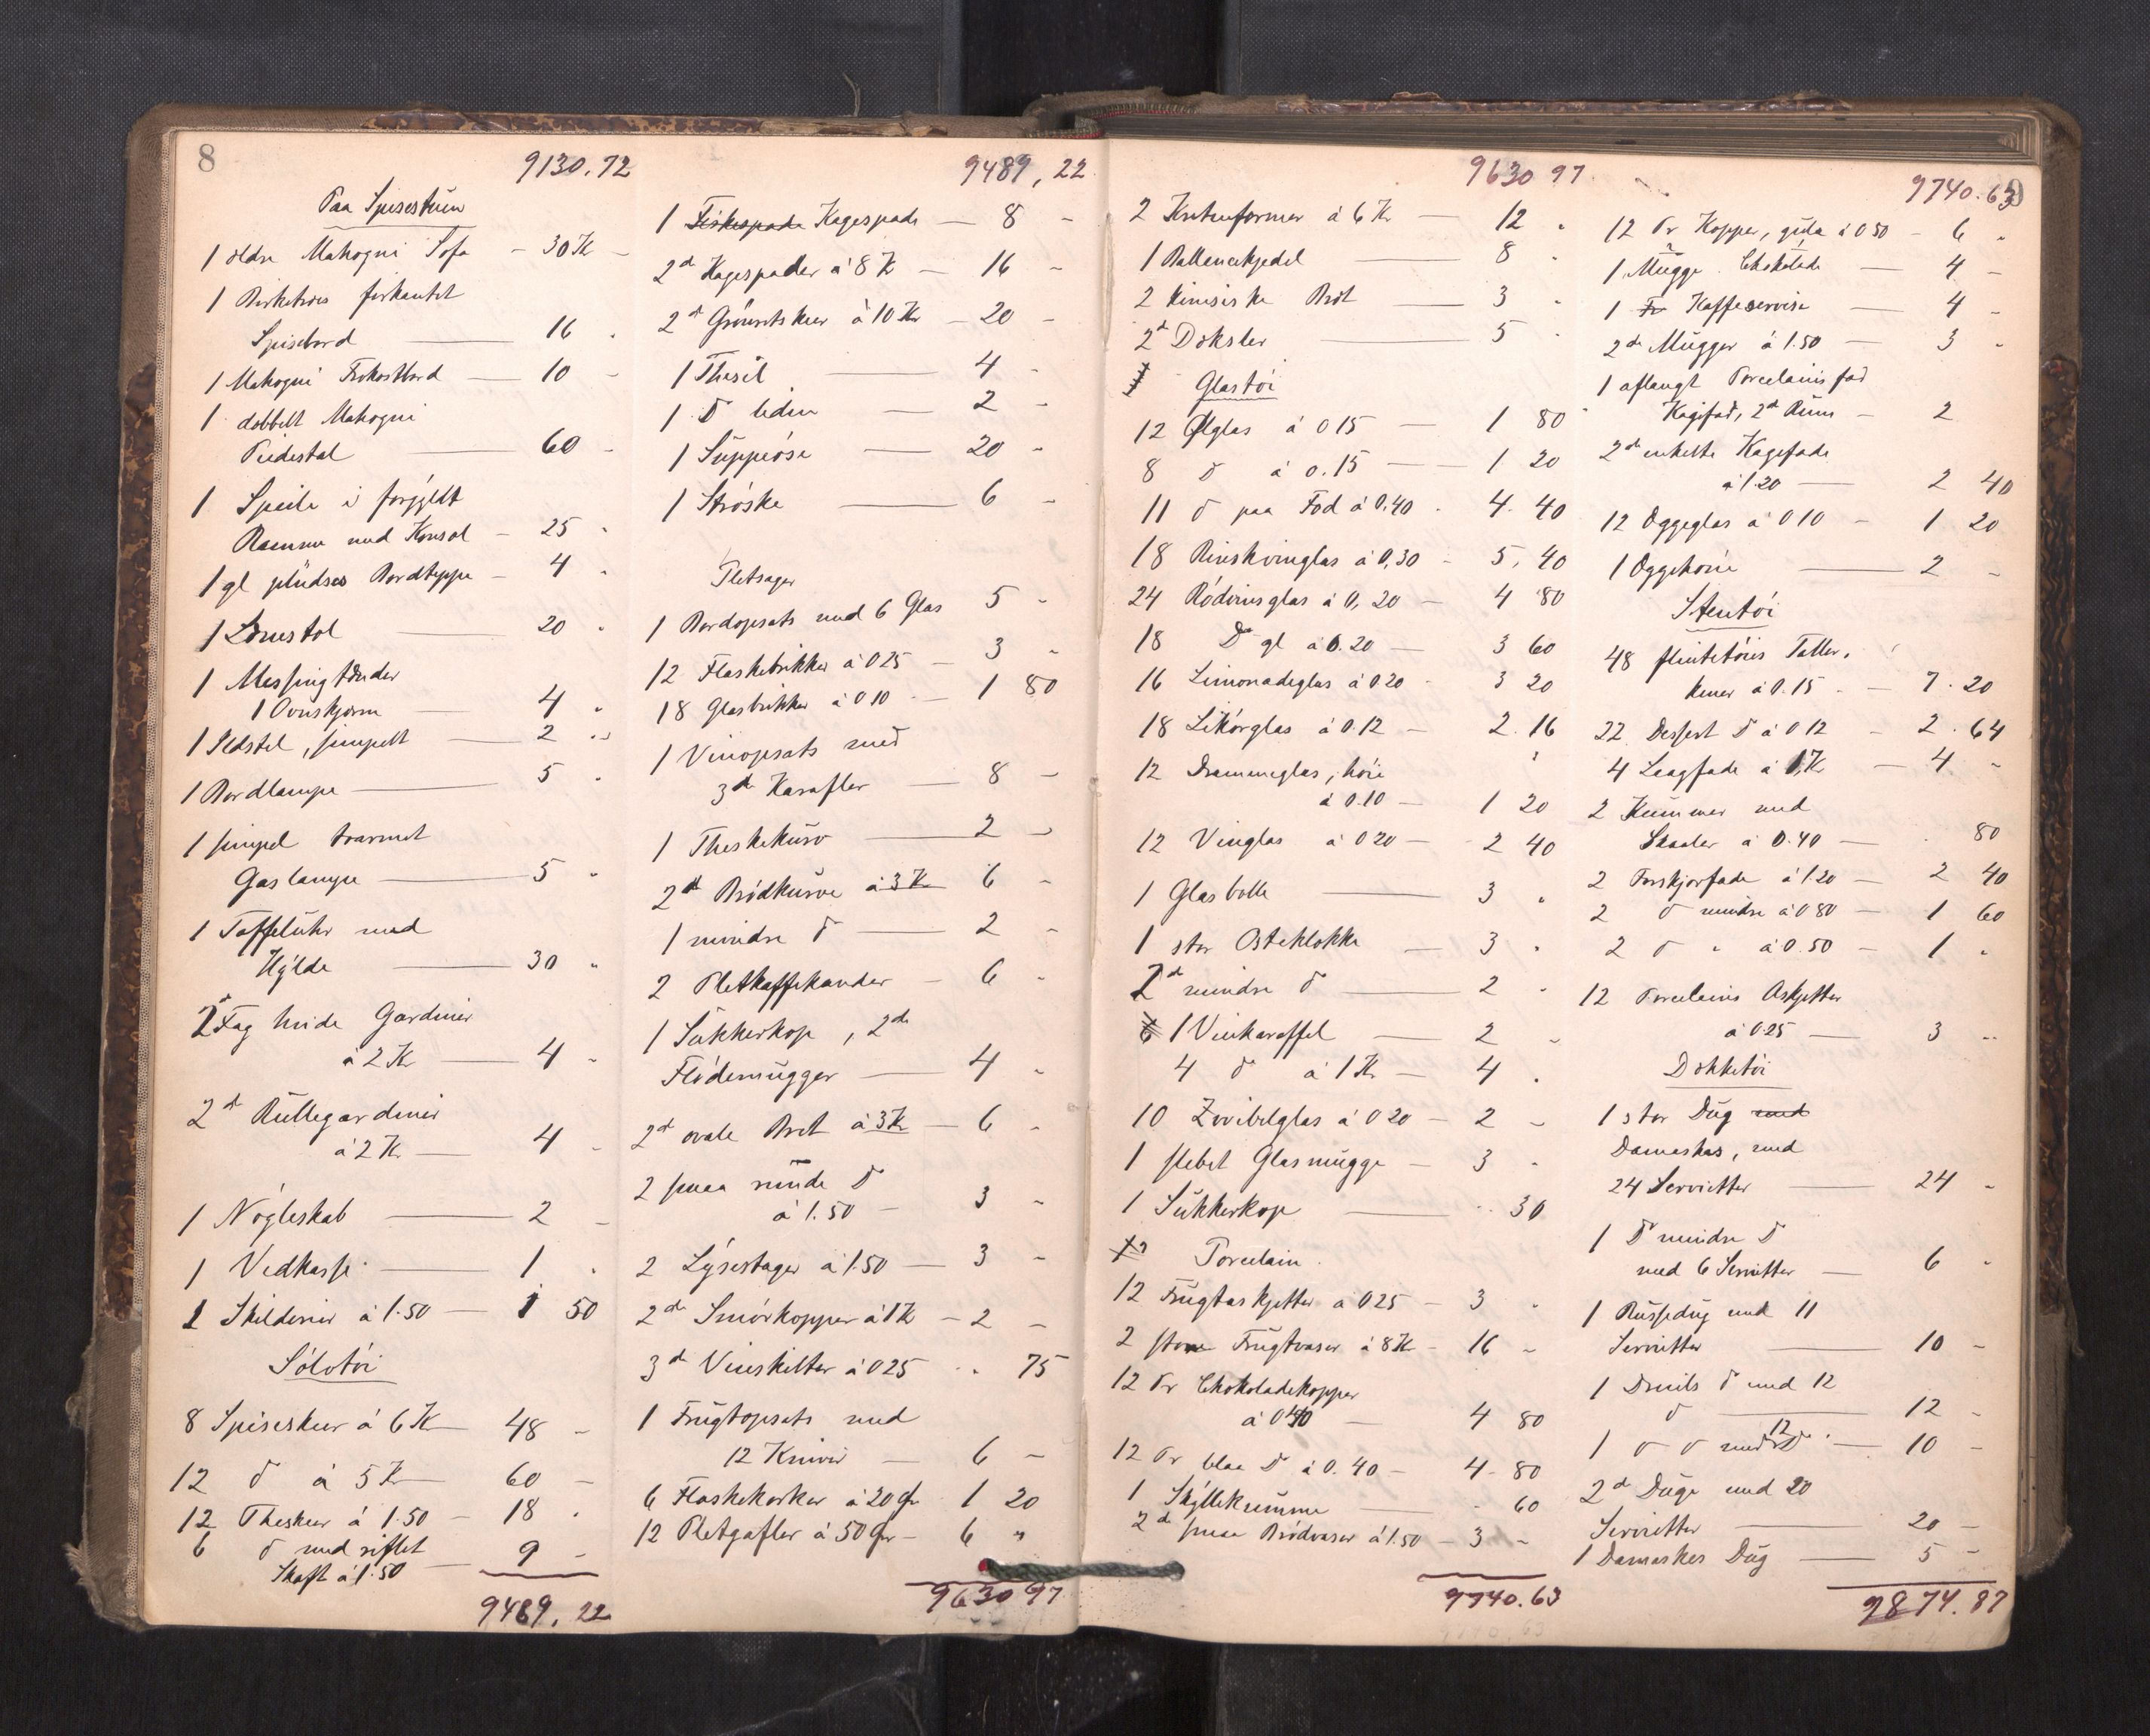 8
9130.72
Paa Spisestuen
1 ældre Mahogni Sofa - 30 Kr -
1 Birketræs firkantet
Spisebord — 16 -
1 Mahogni Frokostbord — 10 -
1 dobbelt Mahogni
Piedestal — 60 -
1 Speile i forgyldt
Ramme med Konsol - 25 -
1 gl plüdses Bordteppe - 4 -
1 Lænestol — 20 -
1 Messingtænder
1 Ovnskjærm — 4 -
1 Ildstel, simpelt — 2 -
1 Bordlampe — 5 -
1 simpel toarmet
Gaslampe — 5 -
1 Taffelühr med
Hylde — 30 -
2 Fag hvide Gardiner
à 2 Kr — 4 -
2d Rüllegardiner
à 2 Kr — 4 -
1 Nøgleskab — 2 -
1 Vedkasse — 1 -
1 Skilderier à 1.50 — 1 50
Sölvtöi
8 Spiseskeer à 6 Kr — 48 -
12 d à 5 Kr — 60 -
12 Theskeer à 1.50 - 18 -
6 d med riflet
Skaft à 1.50 — 9 -
9489.22
9489,22
1 Fiskespade Kagespade — 8 -
2d Kagespader à 8 Kr — 16 -
2d Grönsetskeer à 10 Kr — 20 -
1 Thesil — 4 -
1 D liden — 2 -
1 Süppeöse — 20 -
1 Ströske — 6 -
Pletsager
1 Bordopsats med 6 Glas 5 -
12 Flaskebrikker à 0 25 — 3 -
18 Glasbrikker à 0 10 — 1 80
1 Vinopsats med
3d Karafler — 8 -
1 Theskekürv — 2 -
2d Brödkürve à 3 Kr 6 -
1 mindre d — 2 -
2 Pletkaffekander - 6 -
1 Sükkerkop, 2de
Flödemügger — 4 -
2d ovale Bret à 3 Kr - 6 -
2 smaa runde D
à 1.50 - 3 -
2 Lysestager à 1.50 — 3 -
2de Smörkopper à 1 Kr - 2 -
3d Vinskilter à 0 25 - 75
1 Frügtopsats med
12 Knive — 6 -
6 Flaskekorker à 20 Ør 1 20
12 Pletgafler à 50 Ør - 6 "
9630 97
9630 97
2 Kretenformer à 6 Kr — 12 -
1 Ballancekjedel — 8 -
2 kinesiske Bret — 3 -
2d Döksler — 5 -
Glastöi
12 Ølglas à 0 15 — 1 80
8 d à 0.15 — 1 20
11 d paa Fod à 0.40 - 4.40
18 Rinskvinglas à 0,30 - 5,40
24 Rödvinsglas à 0,20 - 4 80
18 D gl à 0.20 — 3 60
16 Limonadeglas à 0 20 - 3 20
18 Likörglas à 0.12 — 2.16
12 Drammeglas, höie
à 0.10 — 1 20
12 Vinglas à 0 20 — 2 40
1 Glasbolle — 3 -
1 stor Osteklokke — 3 -
2d mindre d — 2 -
1 Vinkaraffel — 2 -
4 d à 1 Kr — 4 -
10 Zwibelglas à 0 20 — 2 -
1 slebet Glasmügge — 3 -
1 Sükkerkop — 30
Porcelain
12 Frügtaskjetter à 0 25 - 3 -
2 store Frügtvaser à 8 Kr - 16 -
12 Pr Chokoladekopper
à 0 40 — 4 80
12 Pr blaa D à 0.40 - 4.80
1 Skyllekumme — 60
2de smaa Brödvaser à 1.50 - 3 -
9740.63
9740.63
9
12 Pr Kopper, güle à 0 50 - 6 -
1 Mügge Chokolade — 4 -
1 Fr Kaffeservise — 4 -
2de Mügger à 1.50 — 3 -
1 aflangt Porcelainsfad
Kagefad, 2d Rüm — 2
2d enkelte Kagefade
à 1.20 — 2 40
12 Eggeglas à 0 10 - 1 20
1 Eggehöne — 2 -
Stentöi
48 flintetöies Taller-
kener à 0.15 - 7.20
22 Dessert D à 0 12 - 2.64
4 Laagfade à 1 Kr — 4 -
2 Kummer med
Skaaler à 0.40 — 80
2 Forskjærfade à 1.20 — 2 40
2 d mindre à 0 80 — 1 60
2 d " à 0.50 - 1 -
12 Porcelains Askjetter
à 0.25 — 3 -
Dækketöi
1 stor Düg med
Damaskes, med
24 Servietter — 24 -
1 D mindre D
med 6 Servietter — 6 -
1 Rüssedüg med 11
Servietter — 10 -
1 Dreils d med 12
d — 12 -
1 d d med 12 D — 10 -
2d Düge med 20
Servietter — 20 -
1 Damaskes Düg — 5 -
9874.87